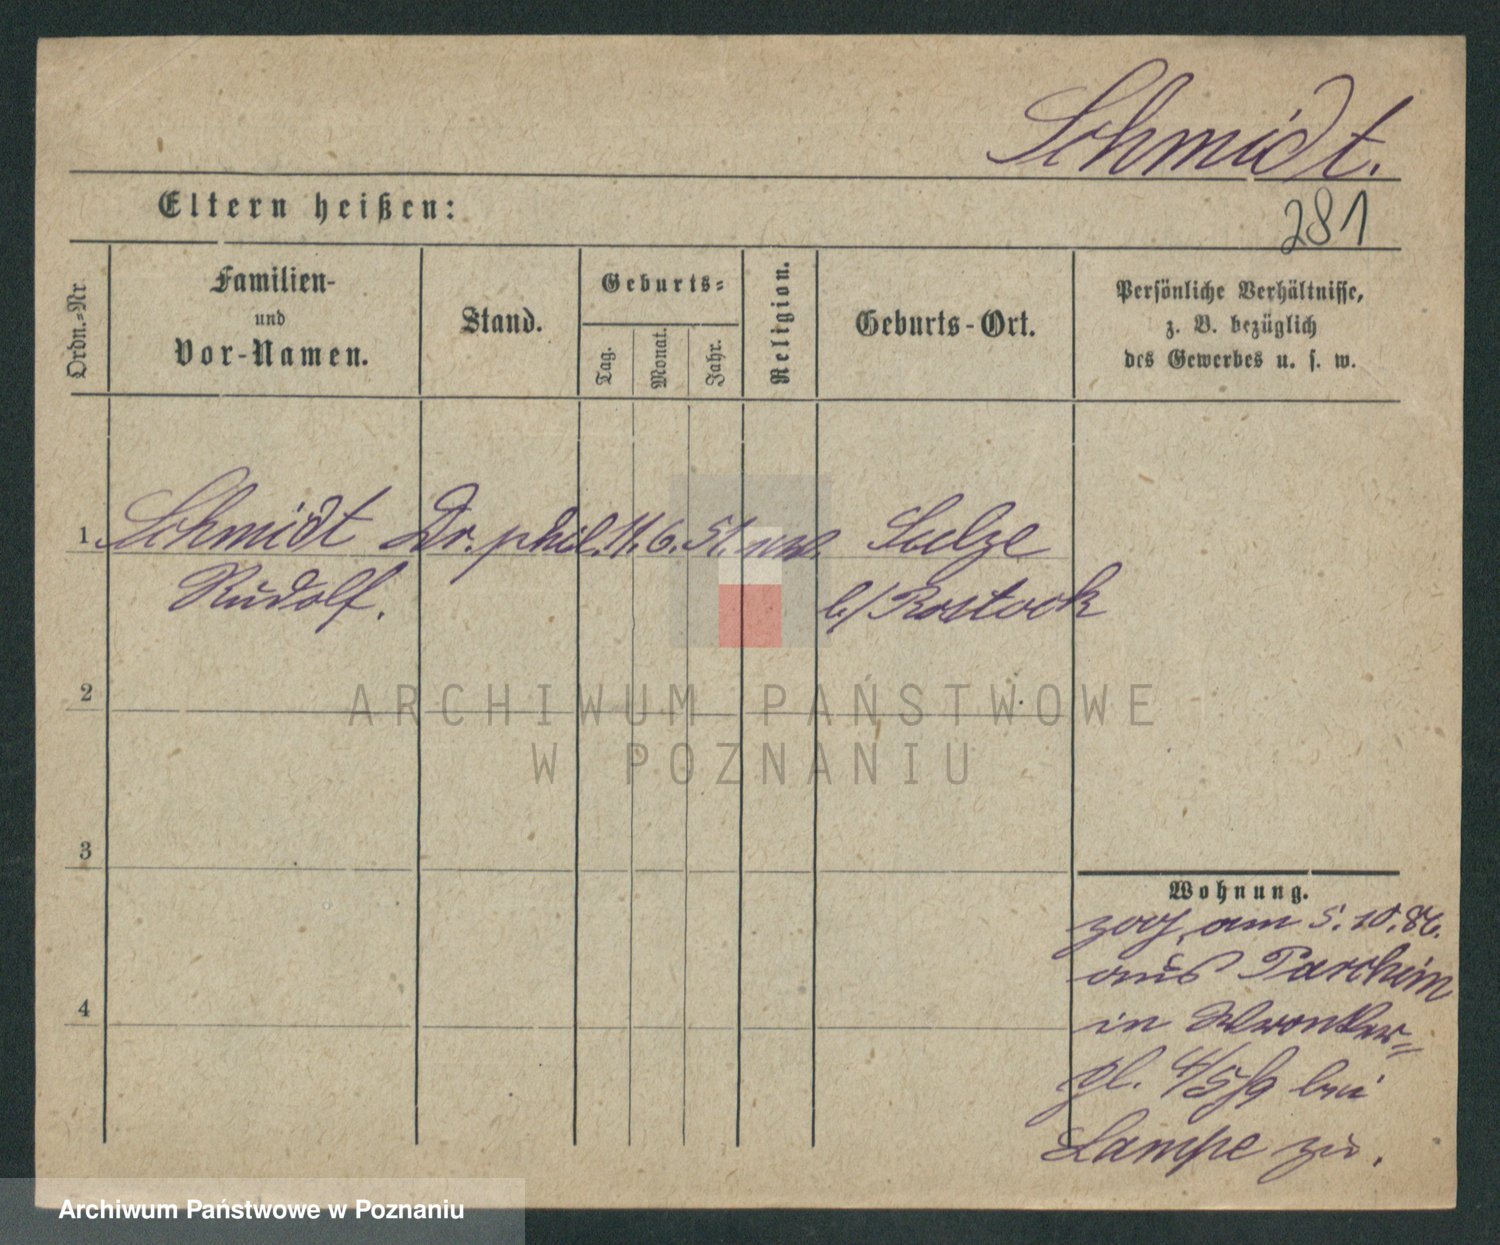 Schmidt.
Eltern heißen:
281
Ordn.-Nr.
Familien-
und
Vor-Namen.
Stand.
Geburts-
Tag.
Monat.
Jahr.
Religion.
Geburts-Ort.
Persönliche Verhältnisse,
z. B. bezüglich
des Gewerbes u. s. w.
1 Schmidt Dr. phil. 11. 6. 51. Sulze
Rudolf. b/ Rostock
2
3
4
Wohnung.
zog am 5. 10. 86.
aus Parchim
in Wronker-
pl. 4/5 bei
Lampe zu.
ARCHIWUM PAŃSTWOWE
W POZNANIU
Archiwum Państwowe w Poznaniu